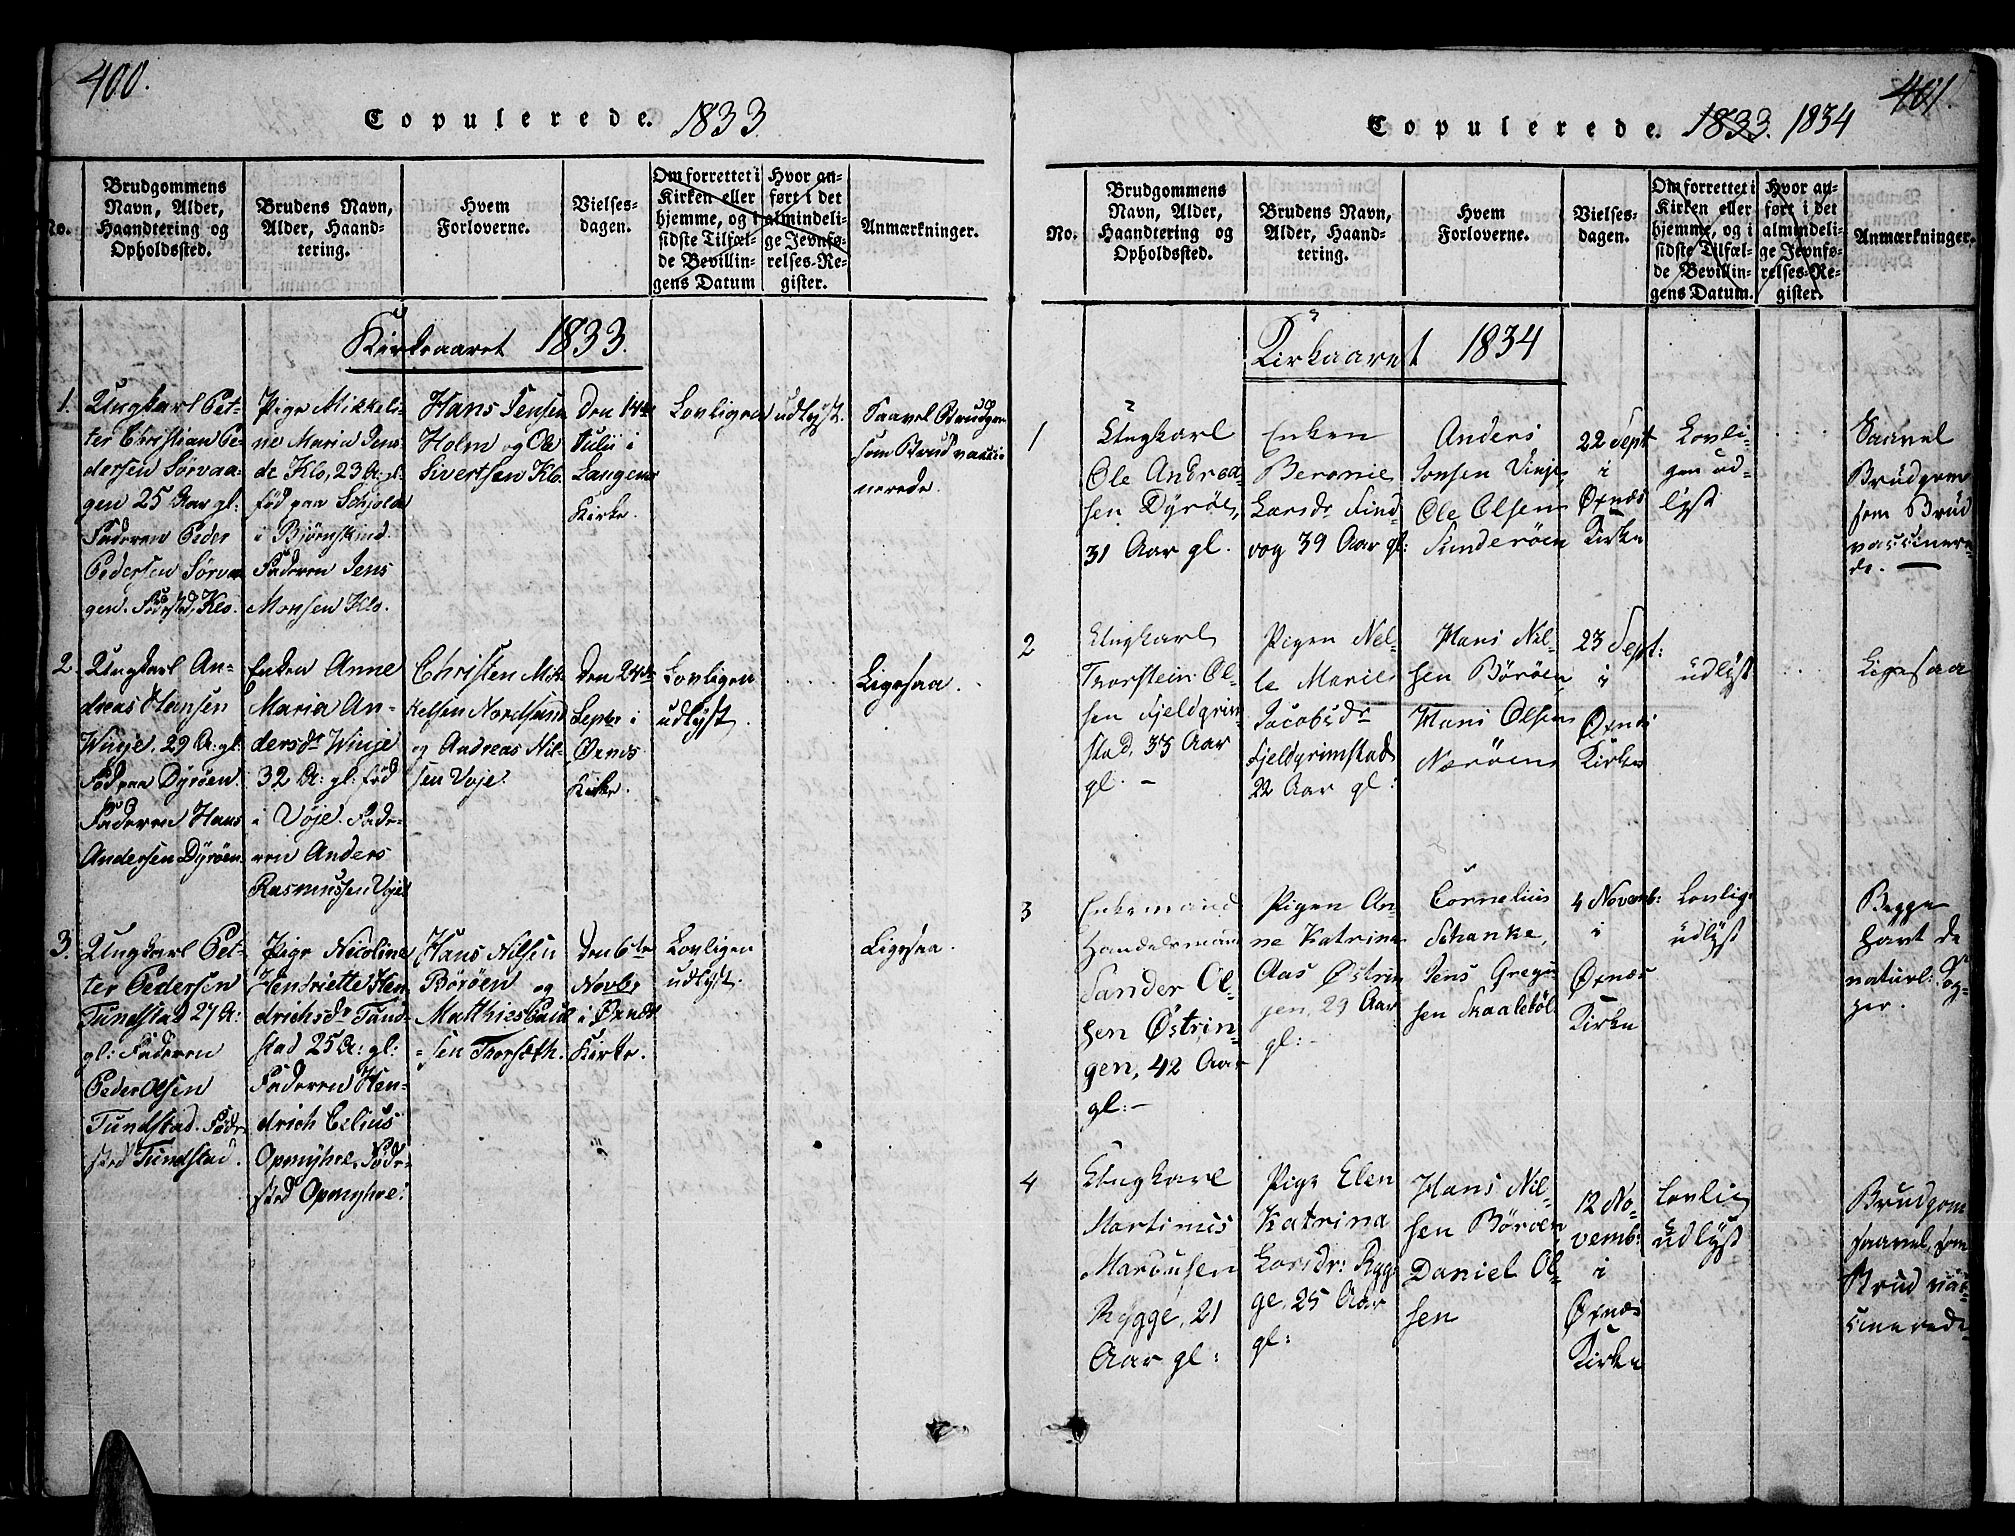 400.
Copulerede. 1833
No.
Brudgommens
Navn, Alder,
Haandtering og
Opholdssted.
Brudens Navn,
Alder, Haand-
tering.
Hvem
Forloverne.
Vielses-
dagen.
Om forrettet i
Kirken eller
hjemme, og i
sidste Tilfæl-
de Bevillin-
gens Datum
Hvor an-
ført i det
almindeli-
ge Jevnfø-
relses-Re-
gister.
Anmærkninger.
Kirkeaaret 1833.
1.
Ungkarl Pet-
ter Christian Pe-
dersen Sørvaa-
gen 25 Aar gl:
Faderen Peder
Pedersen Sørvaa
gen. Fødested Klo.
Pige Mikkeli-
ne Maria Jens-
dr Klo, 23 A: gl:
fød paa Schjolde
i Bjørnskind.
Faderen Jens
Monsen Klo.
Hans Jensen
Holm og Ole
Sivertsen Klo.
Den 14de
Julii i
Langenes
Kirke.
Lovligen udlyst.
Saavel Brudgom
som Brud vacci
nerede.
2.
Ungkarl An-
dreas Hansen
Winje, 29 A: gl:
Fød paa Dyrøen.
Faderen Hans
Andersen Dyrøen.
Enken Anne
Maria An-
dersdr Winje
32 A: gl: fød
i Vøje. Fade-
ren Anders
Rasmussen Voje
Christen Mik
kelsen Nordsand
og Andreas Nil-
sen Voje.
Den 24de
Septbr i
Øxnes
Kirke.
Lovligen
udlyst.
Ligesaa.
3.
Ungkarl Pet-
ter Pedersen
Tundstad 27 A:
gl: Faderen
Peder Olsen
Tundstad. Føde
sted Tundstad.
Pige Nicoline
Hendriette Hen
drichsdr Tund-
stad 25 A: gl:
Faderen Hen-
drich Celius
Opmyhre. Føde-
sted Opmyhre.
Hans Nilsen
Børøen og
Matthies Paul
sen Thorsæth.
Den 6te
Novbr
i Øxnæs
Kirke.
Lovligen
udlyst.
Ligesaa.
401.
Copulerede. 1833. 1834
No.
Brudgommens
Navn, Alder,
Haandtering og
Opholdssted.
Brudens Navn,
Alder, Haand-
tering.
Hvem
Forloverne.
Vielses-
dagen.
Om forrettet i
Kirken eller
hjemme, og i
sidste Tilfæl-
de Bevillin-
gens Datum.
Hvor an-
ført i det
almindeli-
ge Jevnfø-
relses-Re-
gister.
Anmærkninger.
Kirkaaret 1834
1
Ungkarl
Ole Andrea
sen Dyrøe,
31 Aar gl.
Enken
Beronie
Larsdr Find
vog 39 Aar gl:
Anders
Jonsen Vinje,
Ole Olsen
Tinderøen
22 Sept
i
Øxnæs
Kirke
Lovli-
gen ud-
lyst
Saavel
Brudgom
som Brud
vaccinere-
de.
2
Ungkarl
Thorstein Ol-
sen Fjeldgrim
stad, 33 Aar
gl. -
Pigen Nel-
le Marie
Jacobsdr
Fjeldgrimstad
22 Aar gl:
Hans Nil-
sen Børøen,
Hans Olsen
Nærøen
23 Sept:
i
Øxnæs
Kirke
udlyst
Ligesaa
3
Enkemand
Handelsmand
Sander Ol-
sen Østrin-
gen, 42 Aar
gl: -
Pigen An-
ne Katrine
Aas Østrin
gen, 29 Aar
gl: -
Cornelius
Schanke,
Jens Gregu
sen Skaalebøl
4 Novemb:
i
Øxnæs
Kirke
Lovlig
udlyst
Begge
havt de
naturl: Kop-
per.
4
Ungkarl
Martinus
Marcusen
Rygge, 21
Aar gl:
Pige Elen
Katrina
Larsdr: Ryg-
ge, 25 Aar
gl:
Hans Nil-
sen Børøen,
Daniel Ol-
sen
12 No-
vemb:
i
Øxnæs
Kirke
Lovlig
udlyst
Brudgom
saavel som
Brud vac-
cinerede